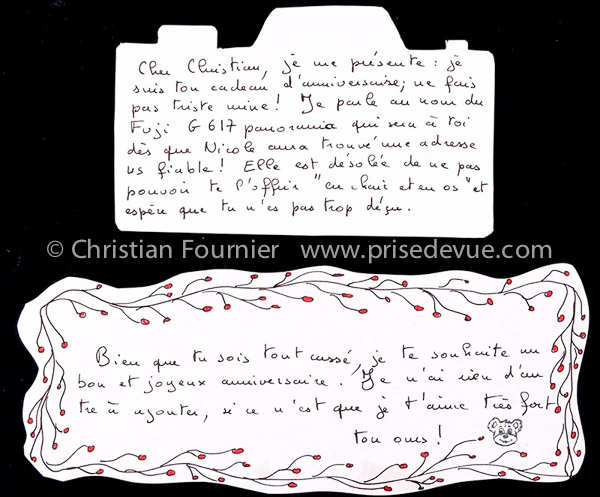 Cher Christian, je me présente : je
suis ton cadeau d'anniversaire; ne fais
pas triste mine ! Je parle au nom du
Fuji G 617 panorama qui sera à toi
dès que Nicole aura trouvé une adresse
us fiable ! Elle est désolée de ne pas
pouvoir te l'offrir "en chair et en os" et
espère que tu n'es pas trop déçu.
© Christian Fournier www.prisedevue.com
Bien que tu sois tout cassé, je te souhaite un
bon et joyeux anniversaire. Je n'ai rien d'au
tre à ajouter, si ce n'est que je t'aime très fort
ton ours !